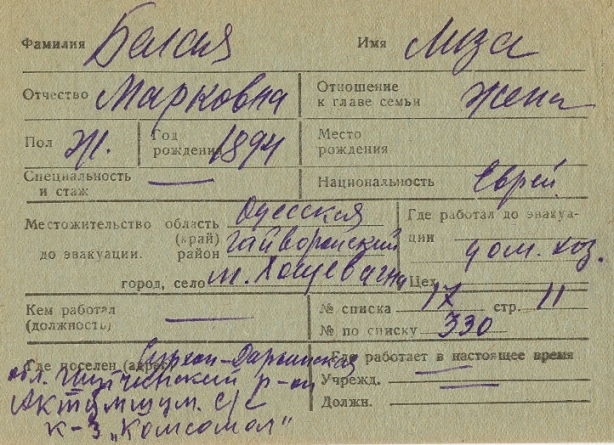 Фамилия Белая Имя Лиза
Отчество Марковна Отношение к главе семьи жена
Пол Ж. Год рождения 1894 Место рождения
Специальность и стаж — Национальность Еврей
Местожительство область Одесская Где работал до эвакуа-
(край) ции
до эвакуации. район Гайворонский дом. хоз.
город, село м. Хощевачна Цех
Кем работал (должность) — № списка 17 стр. 11
№ по списку 330
Где поселен (адрес) Сурхан-Дарьинская Где работает в настоящее время
обл. р-он Учрежд. —
с/с Должн. —
к-з „Комсомол"